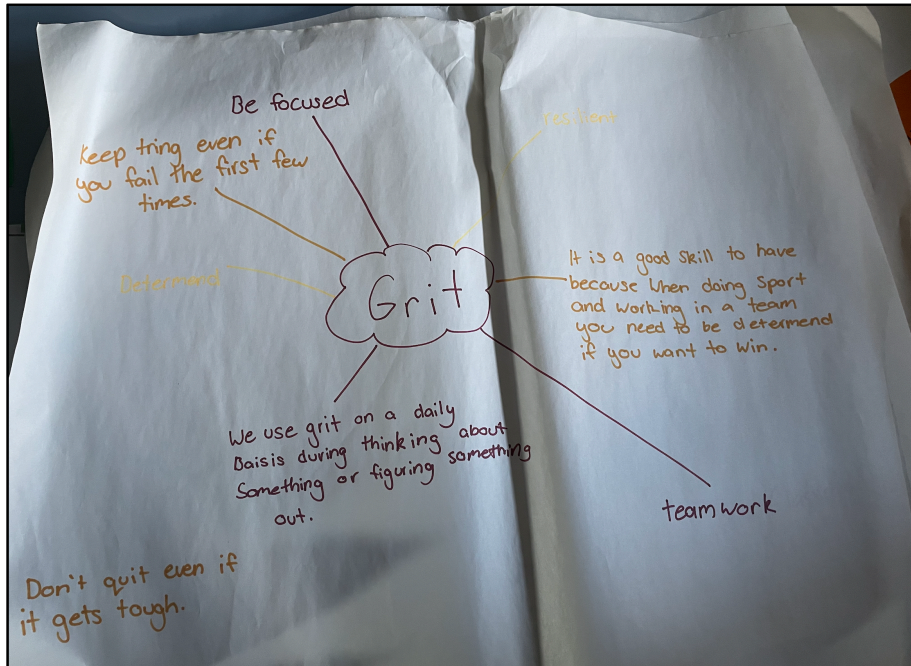 Be focused
resilient
Keep tring even if
you fail the first few
times.
Determend
Grit
It is a good skill to have
because when doing sport
and working in a team
you need to be determend
if you want to win.
We use grit on a daily
Baisis during thinking about
Something or figuring something
out.
teamwork
Don't quit even if
it gets tough.